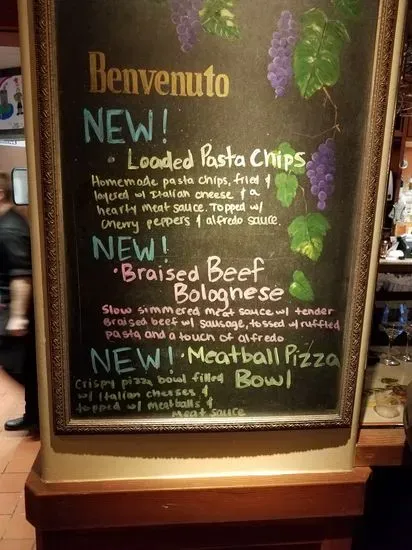 Benvenuto
NEW!
• Loaded Pasta Chips
Homemade pasta chips, fried &
layered w/ Italian cheese & a
hearty meat sauce. Topped w/
cherry peppers & alfredo sauce.
NEW!
• Braised Beef
Bolognese
Slow simmered meat sauce w/ tender
Braised beef w/ sausage, tossed w/ ruffled
pasta and a touch of alfredo
NEW! • Meatball Pizza
Bowl
Crispy pizza bowl filled
w/ Italian cheeses &
topped w/ meatballs &
meat sauce